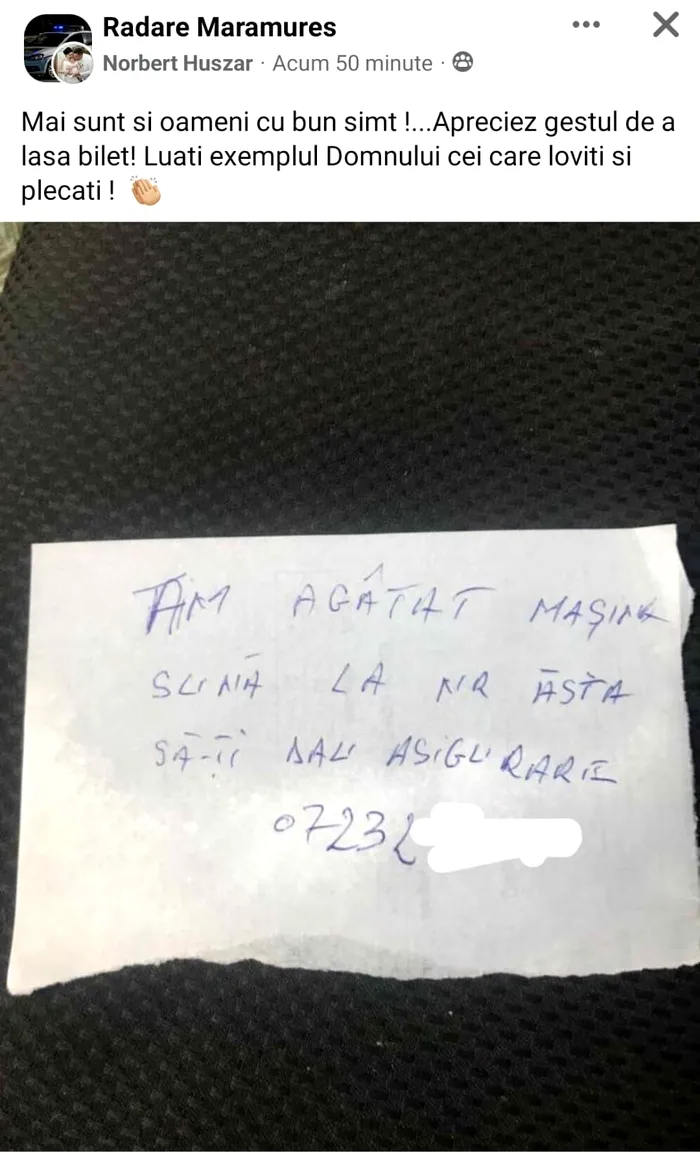 Radare Maramures
Norbert Huszar · Acum 50 minute ·
Mai sunt si oameni cu bun simt !...Apreciez gestul de a
lasa bilet! Luati exemplul Domnului cei care loviti si
plecati ! 👏🏼
AM AGÂTAT MAȘINA
SUNĂ LA NR ĂSTA
SĂ-ȚI DAU ASIGURARE
0723